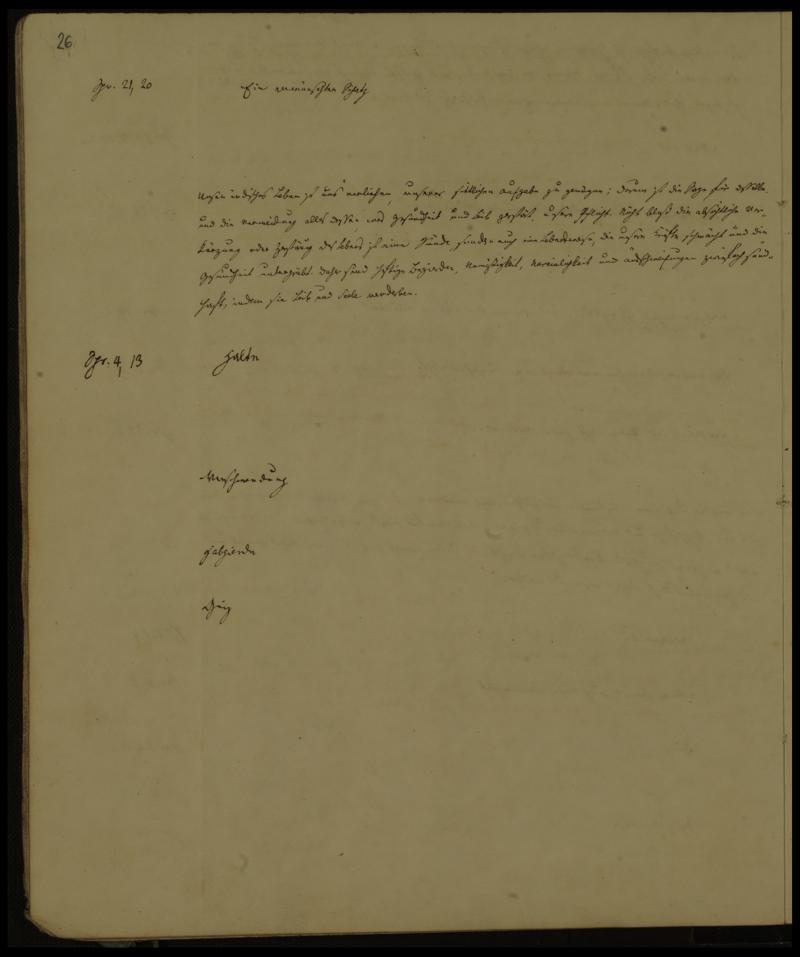 26
Spr. 21, 20 Ein erwünschter Schatz
Unser irdisches Leben ist uns verliehen, unserer sittlichen Aufgabe zu genügen; darum ist die Sorge für dasselbe
und die Vermeidung alles dessen, was Gesundheit und Leib zerstört, unsere Pflicht. Nicht bloß die absichtliche Ver-
kürzung oder Zerstörung des Lebens ist eine Sünde, sondern auch eine Lebensweise, die unsere Kräfte schwächt und die
Gesundheit untergräbt. Daher sind heftige Begierden, Unmäßigkeit, Unreinlichkeit und Ausschweifungen zwiefach sünd-
haft, indem sie Leib und Seele verderben.
Spr. 4, 13 Halte
Verschwendung
Habgierde
Geiz